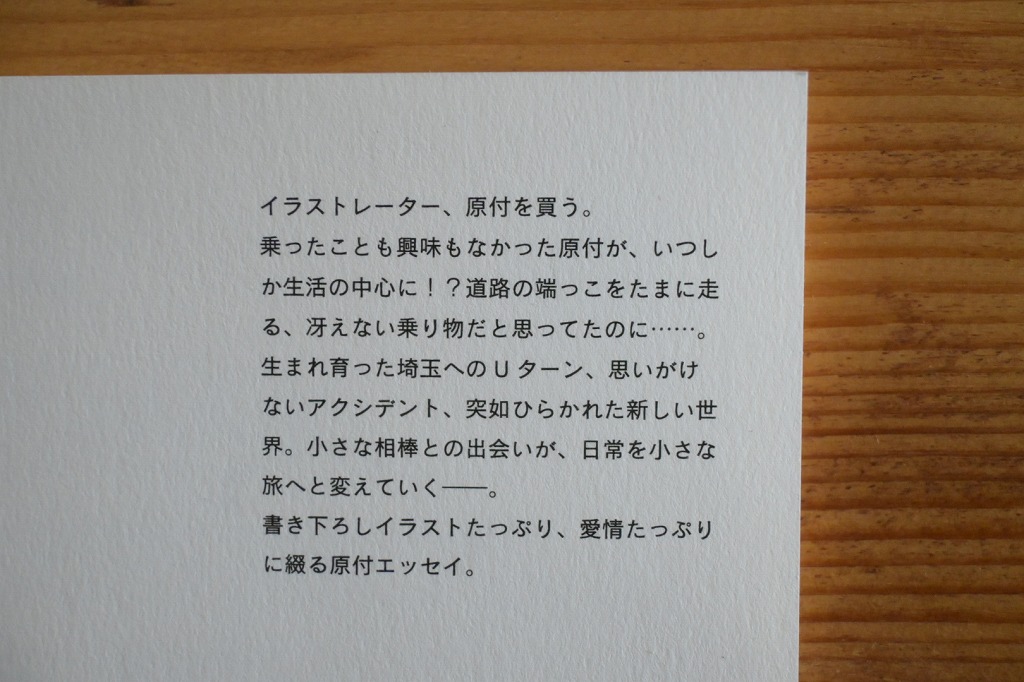 イラストレーター、原付を買う。
乗ったことも興味もなかった原付が、いつし
か生活の中心に！？道路の端っこをたまに走
る、冴えない乗り物だと思ってたのに……。
生まれ育った埼玉へのUターン、思いがけ
ないアクシデント、突如ひらかれた新しい世
界。小さな相棒との出会いが、日常を小さな
旅へと変えていく――。
書き下ろしイラストたっぷり、愛情たっぷり
に綴る原付エッセイ。